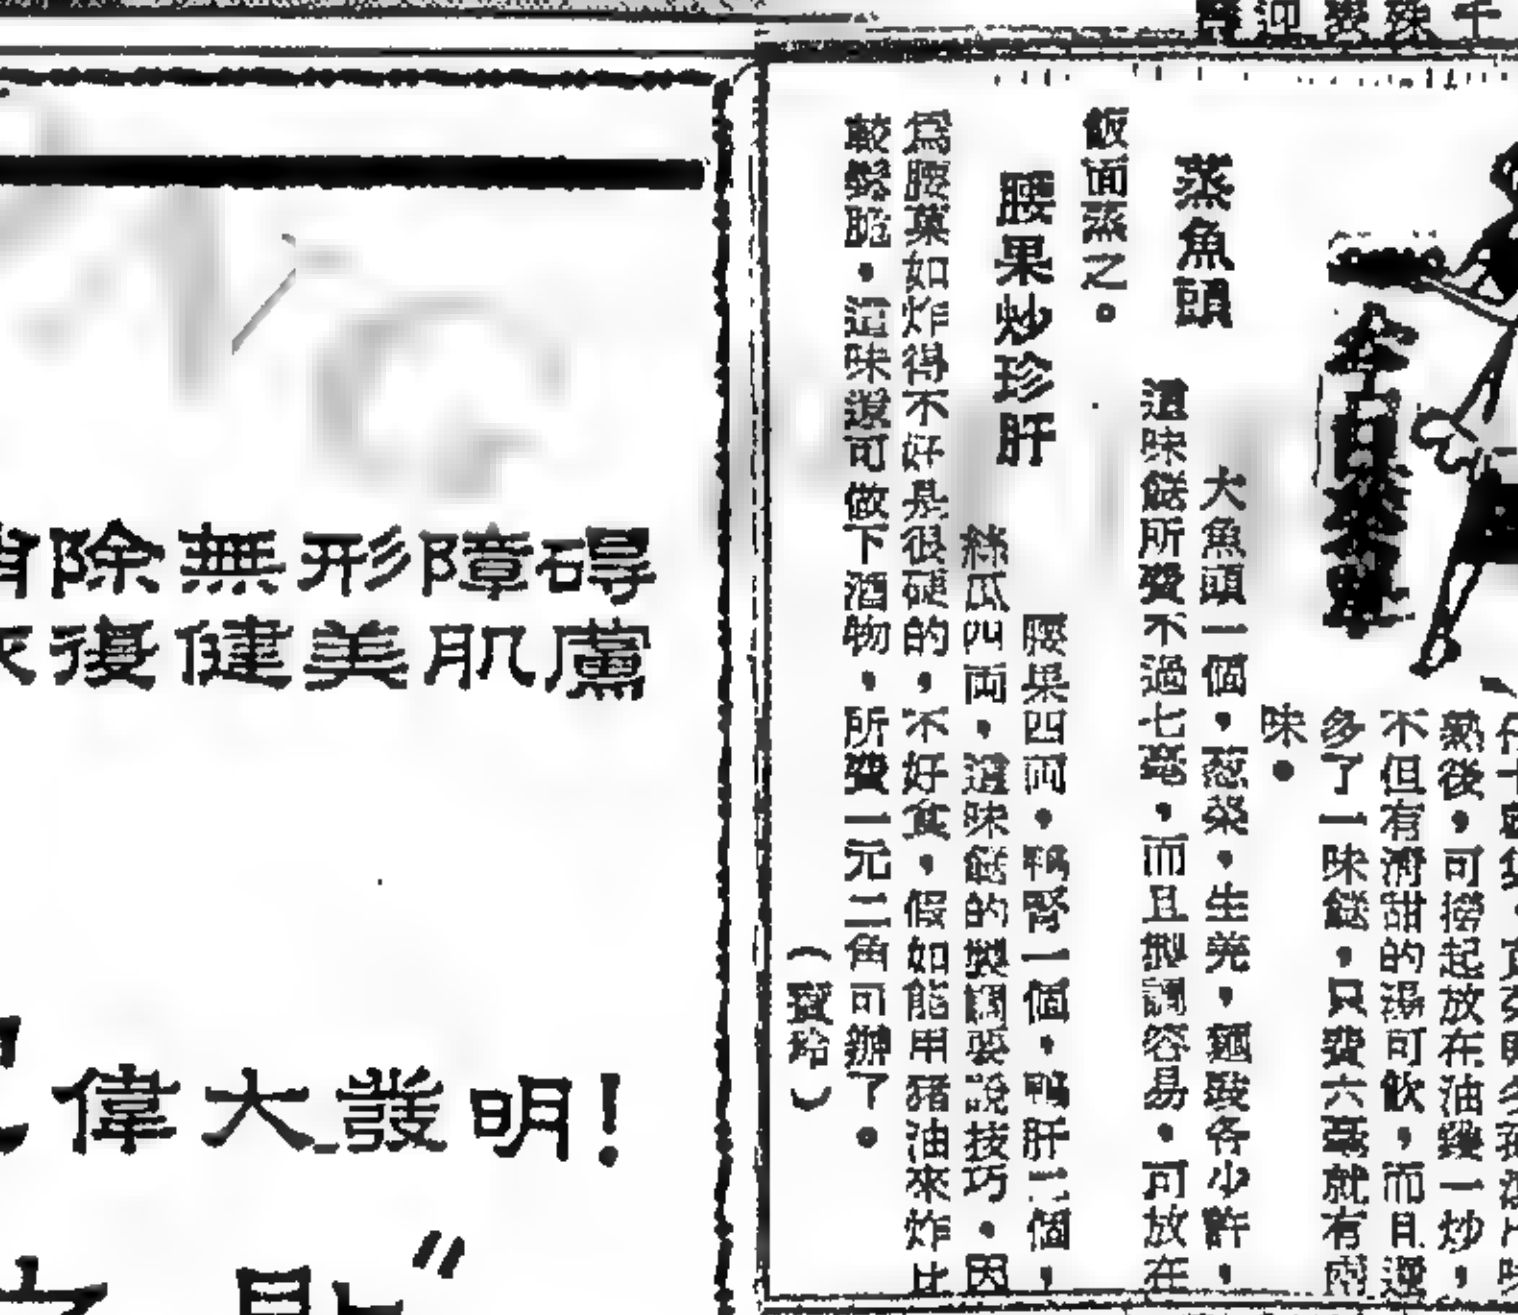 今日來餸
熟後，可撈起放在油鑊一炒，
不但有清甜的湯可飲，而且還
多了一味餸，只費六毫就有兩
味。
蒸魚頭
大魚頭一個，葱菜，生羌，麵豉各少許，
這味餸所費不過七毫，而且製調容易，可放在
飯面蒸之。
腰果炒珍肝
腰果四両，鴨腎一個，鴨肝二個，
絲瓜四両，這味餸的製調要說技巧，因
為腰菓如炸得不好是很硬的，不好食，假如能用豬油來炸比
較鬆脆，這味還可做下酒物，所費一元二角可辦了。
（寶玲）
除無形障碍
復健美肌膚
偉大發明！